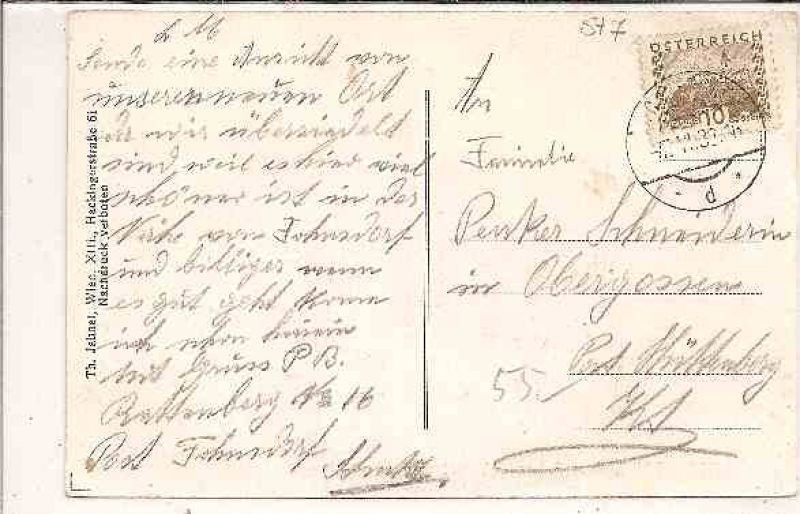 St 7
Sende eine Ansicht von
unserem neuen Ort
wo wir übersiedelt
sind weil es hier viel
schöner ist in der
Nähe von Fohnsdorf
und billiger wenn
es gut geht komm
ich schon
Mit Gruss P B.
Rattenberg No 16
Post Fohnsdorf
Th. Jahnel, Wien, XIII., Hackingerstraße 61
Nachdruck verboten
ÖSTERREICH
10
An
Familie
Penker Schneiderin
in Obergossen
Post
55.